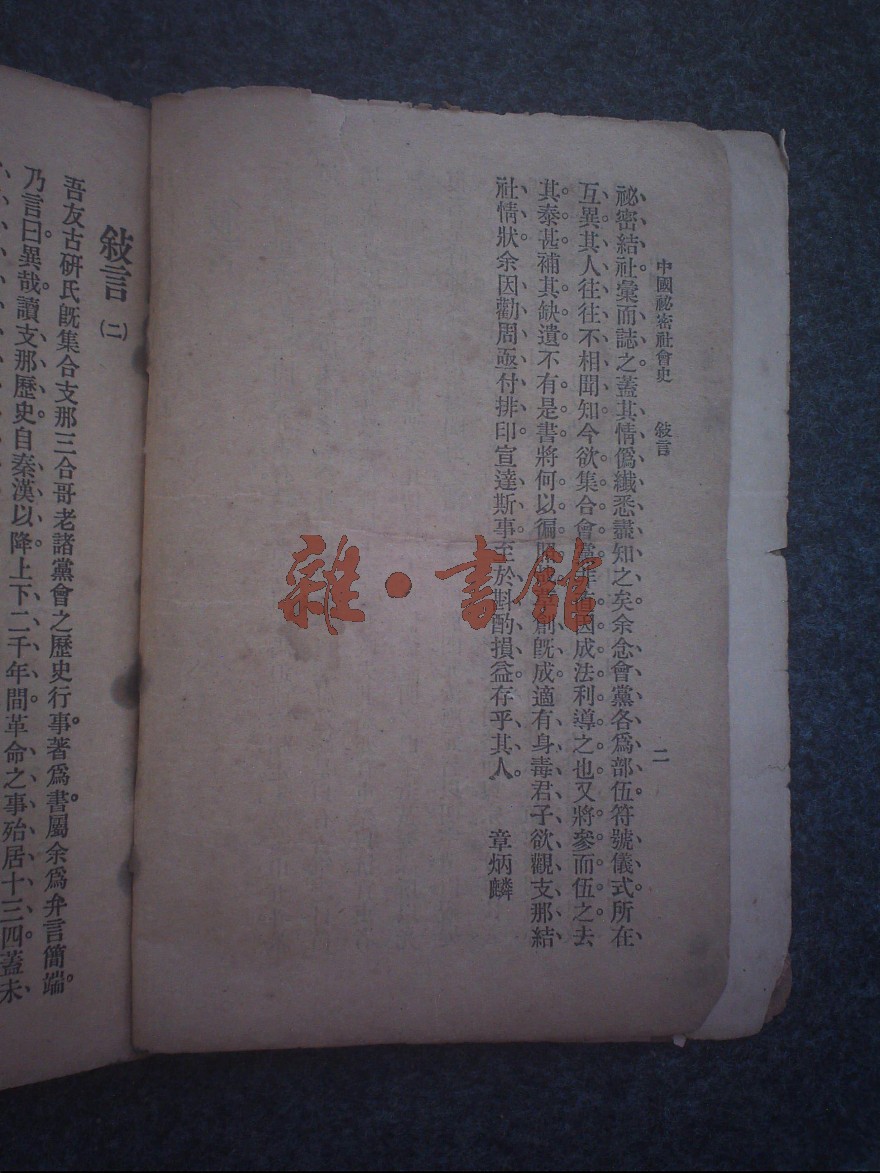 中國祕密社會史　敍言　二
祕密結社彙而誌之蓋其情僞纎悉盡知之矣余念會黨各爲部伍符號儀式所在
互異其人往往不相聞知今欲集合會黨非直因成法利導之也又將參而伍之去
其泰甚補其缺遺不有是書將何以徧照草創旣成適有身毒君子欲觀支那結
社情狀余因勸周亟付排印宣達斯事至於斟酌損益存乎其人　章炳麟
敍言（二）
吾友古硏氏旣集合支那三合哥老諸黨會之歷史行事著爲書屬余爲弁言簡端
乃言曰異哉讀支那歷史自秦漢以降上下二千年間革命之事殆居十三四蓋未
雜·書館